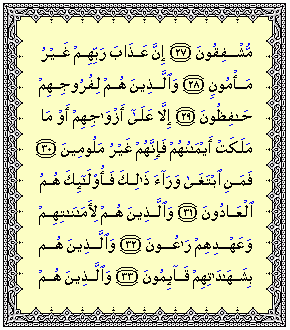 مُّشْفِقُونَ ٢٧ إِنَّ عَذَابَ رَبِّهِمْ غَيْرُ
مَأْمُونٍ ٢٨ وَٱلَّذِينَ هُمْ لِفُرُوجِهِمْ
حَٰفِظُونَ ٢٩ إِلَّا عَلَىٰٓ أَزْوَٰجِهِمْ أَوْ مَا
مَلَكَتْ أَيْمَٰنُهُمْ فَإِنَّهُمْ غَيْرُ مَلُومِينَ ٣٠
فَمَنِ ٱبْتَغَىٰ وَرَآءَ ذَٰلِكَ فَأُو۟لَٰٓئِكَ هُمُ
ٱلْعَادُونَ ٣١ وَٱلَّذِينَ هُمْ لِأَمَٰنَٰتِهِمْ
وَعَهْدِهِمْ رَٰعُونَ ٣٢ وَٱلَّذِينَ هُم
بِشَهَٰدَٰتِهِمْ قَآئِمُونَ ٣٣ وَٱلَّذِينَ هُمْ